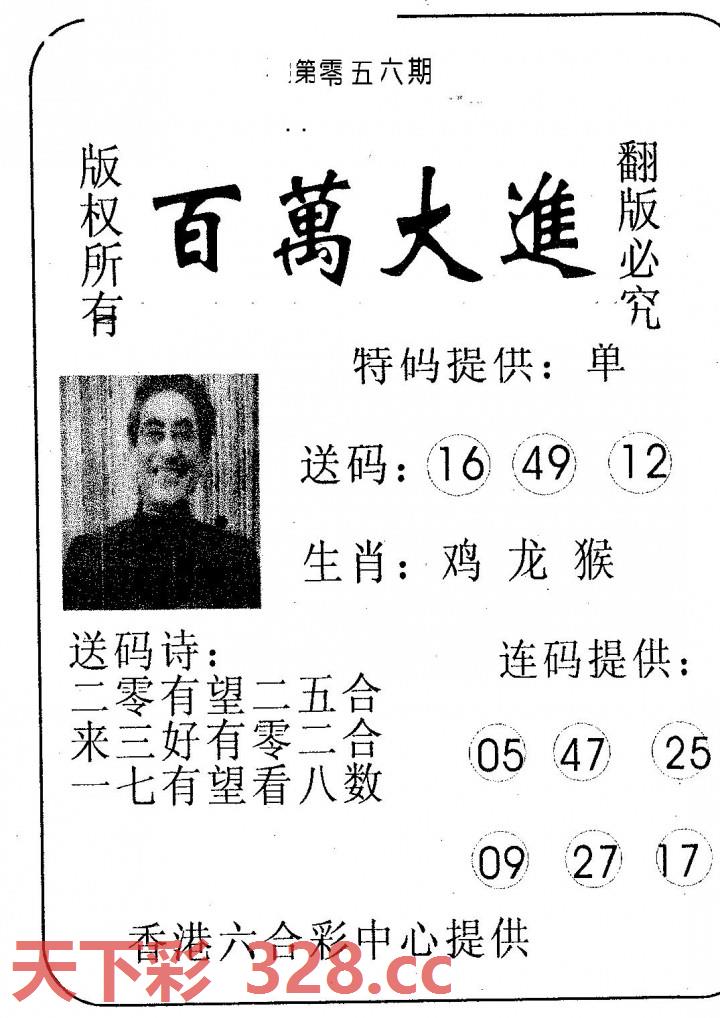 第零五六期
版权所有
百萬大進
翻版必究
特码提供：单
送码：16 49 12
生肖：鸡 龙 猴
送码诗：
二零有望二五合
来三好有零二合
一七有望看八数
连码提供：
05 47 25
09 27 17
香港六合彩中心提供
天下彩 328.cc